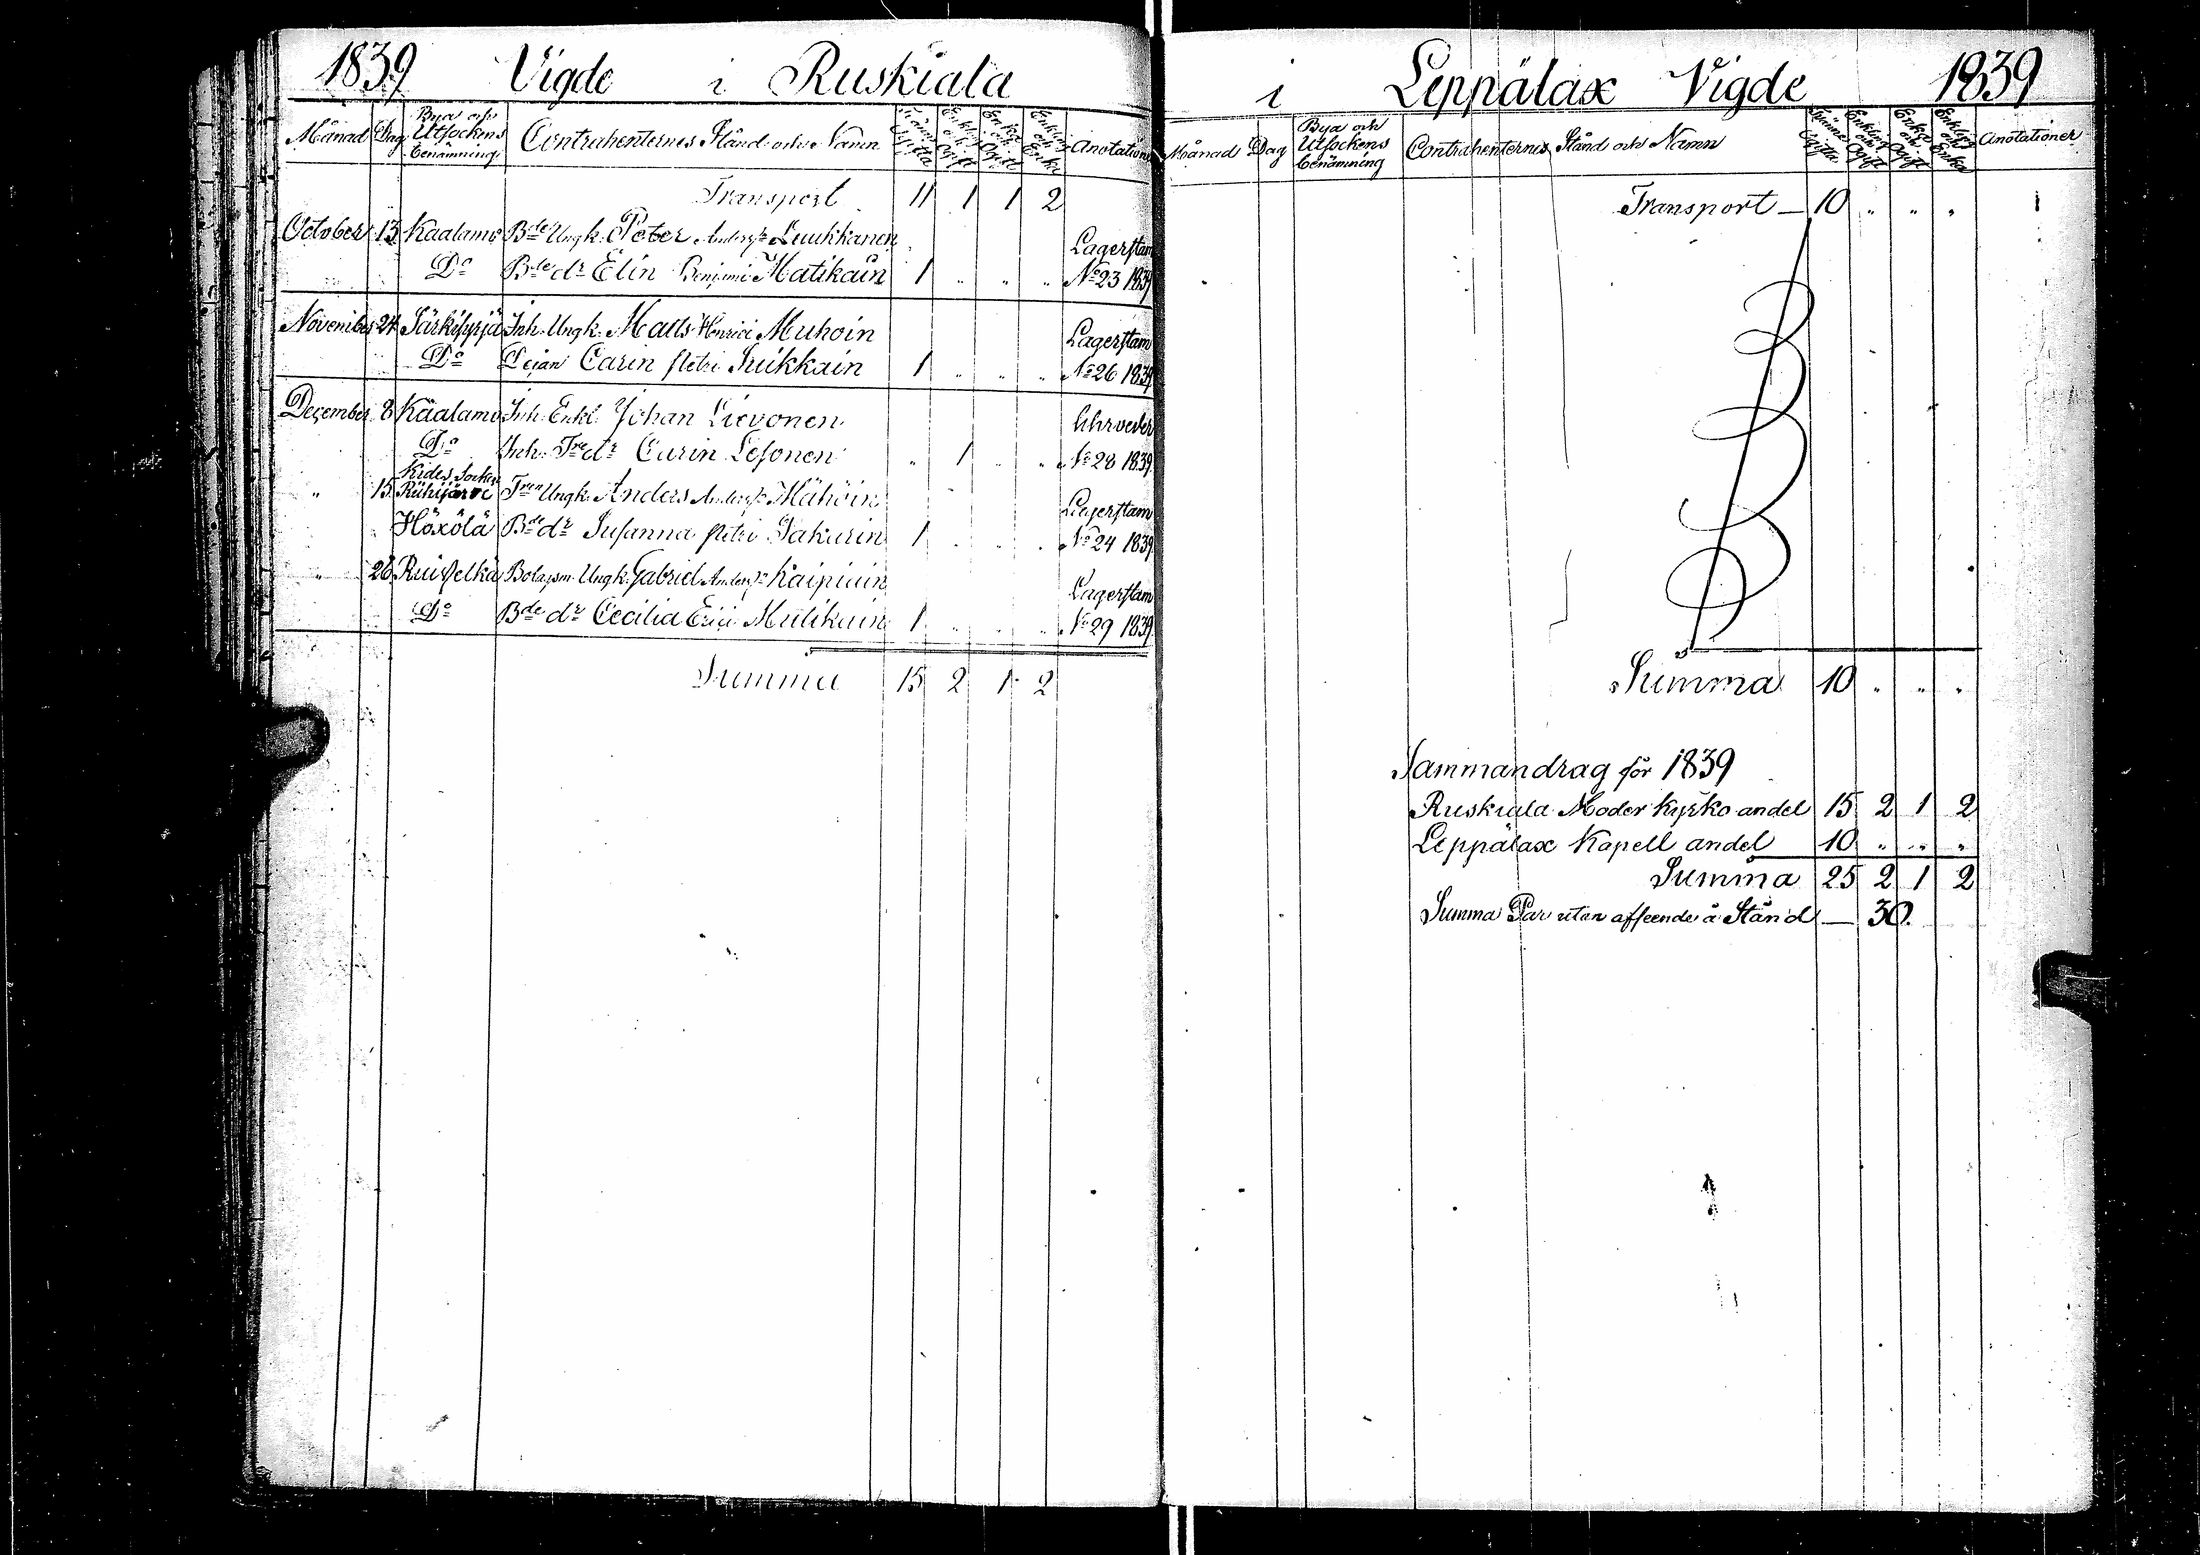 1839 Vigde i Ruskiala
Månad Dag Bya och Utsockens benämning Contrahenternes Stånd och Namn Enkl. och Ogift Enka och Ogift Enkling och Enka Anotationer
Transport 11 1 1 2
October 13 Kaalamo Bde Ungk. Peter Anders Luukkanen Lagerstam
Do Bde dr Elin Benjami Matikain 1 " " " No 23 1839
November 24 Särkisyrjä Inh. Ungk. Matts Henrici Muhoin Lagerstam
Do Pejan Carin Petri 1 " " " No 26 1839
December 8 Kaalamo Inh. Enkl. Johan Lievonen
Do Inh. Tre dr Carin Lesonen " 1 " " No 28 1839
Kides Socken
" 15 Anders Lagerstam
Höxölä Bde dr Susanna Petri Sakurin 1 " " " No 24 1839
" 26 Ruisselkä Ungk. Gabriel Anders Kaipiain Lagerstam
Do Bde dr Cecilia Erici 1 " " " No 29 1839
Summa 15 2 1 2
i Leppälax Vigde 1839
Månad Dag Bya och Utsockens benämning Contrahenternes Stånd och Namn Enkling och Ogift Enka och Ogift Enkling och Enka Anotationer
Transport — 10 " " "
Summa 10 " " "
Sammandrag för 1839
Ruskiala Moder kyrko andel 15 2 1 2
Leppälax Kapell andel 10 " " "
Summa 25 2 1 2
Summa Par utan afseende å Stånd — 30.